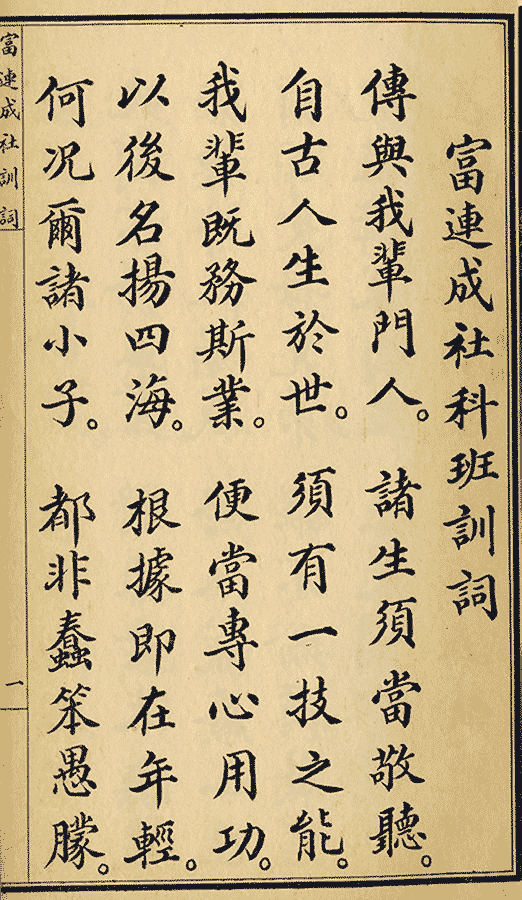 富連成社科班訓詞
傳與我輩門人。諸生須當敬聽。
自古人生於世。須有一技之能。
我輩既務斯業。便當專心用功。
以後名揚四海。根據即在年輕。
何况爾諸小子。都非蠢笨愚朦。
富連成社訓詞
一